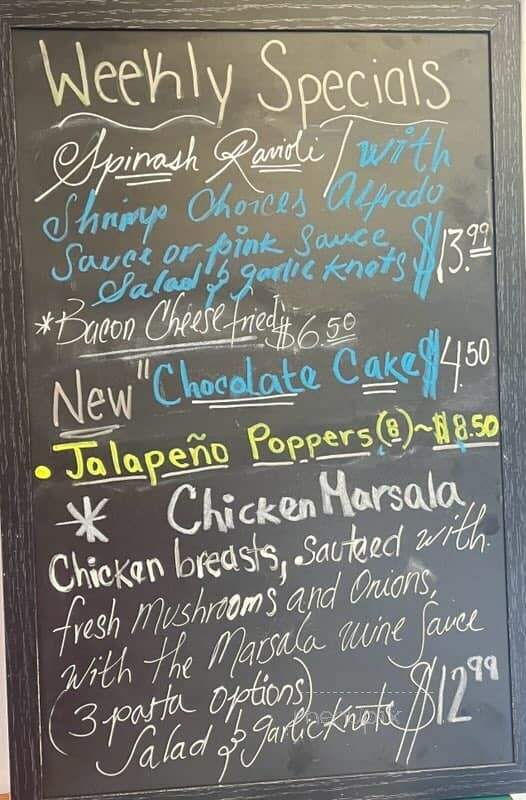 Weekly Specials
Spinash Ravioli / with
Shrimp Choices Alfredo
Sauce or pink Sauce
Salad & garlic knots $13.99
*Bacon Cheese fried $6.50
New "Chocolate Cake $4.50
• Jalapeño Poppers (8) ~ $8.50
* Chicken Marsala
Chicken breasts, Sauteed with
fresh Mushrooms and Onions,
with the Marsala wine Sauce
(3 pasta options)
Salad & garlic knots $12.99